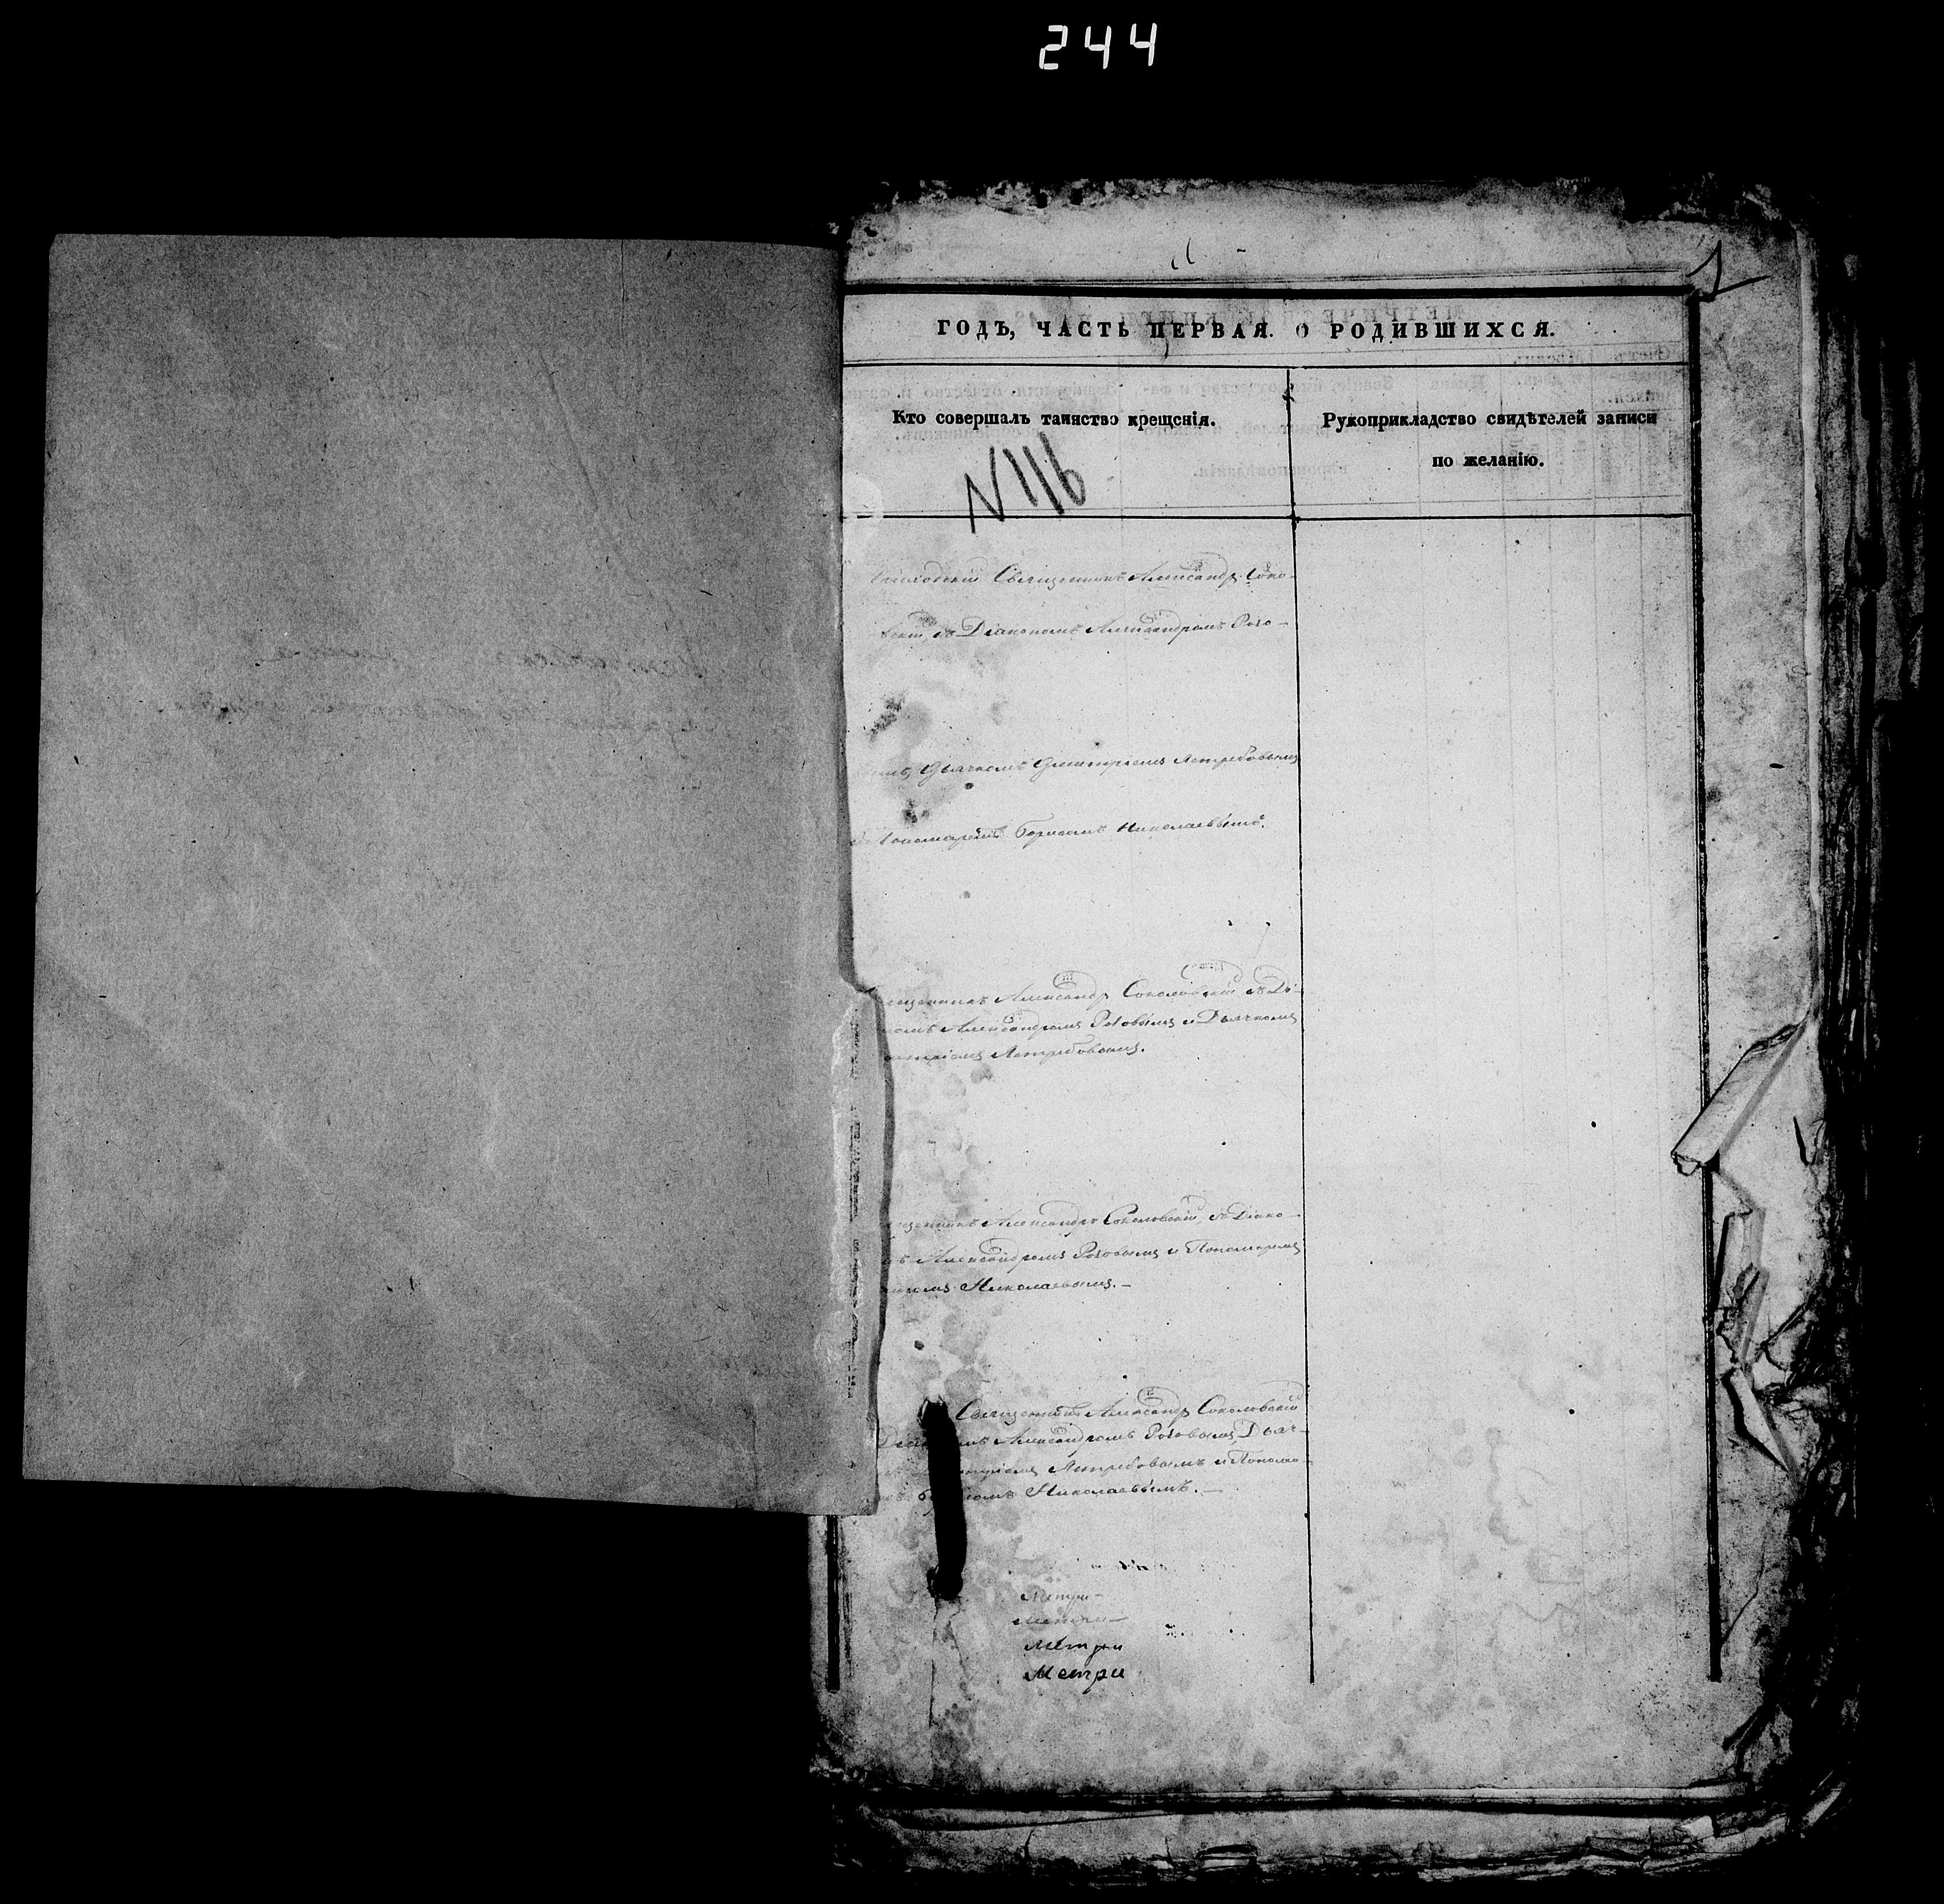 244
1
ГОДЪ, ЧАСТЬ ПЕРВАЯ. О РОДИВШИХСЯ.
Кто совершалъ таинство крещенія.
Рукоприкладство свидѣтелей записи
по желанію.
N 116
Священникъ Александръ Соко-
вскій, съ Діакономъ Александромъ Рого-
Дьячкомъ Дмитріемъ Ястребовымъ
Пономаремъ Борисомъ Николаевымъ.
Александръ Соколовскій съ Ді-
Александромъ Роговымъ и Дьячкомъ
Ястребовымъ.
Александръ Соколовскій, съ Діако-
Александромъ Роговымъ и Пономаремъ
Николаевымъ. —
Священникъ Александръ Соколовскій
Александромъ Роговымъ, Дьяч-
Ястребовымъ и Понома-
Николаевымъ. —
Метри-
Метри-
Метри
Метри